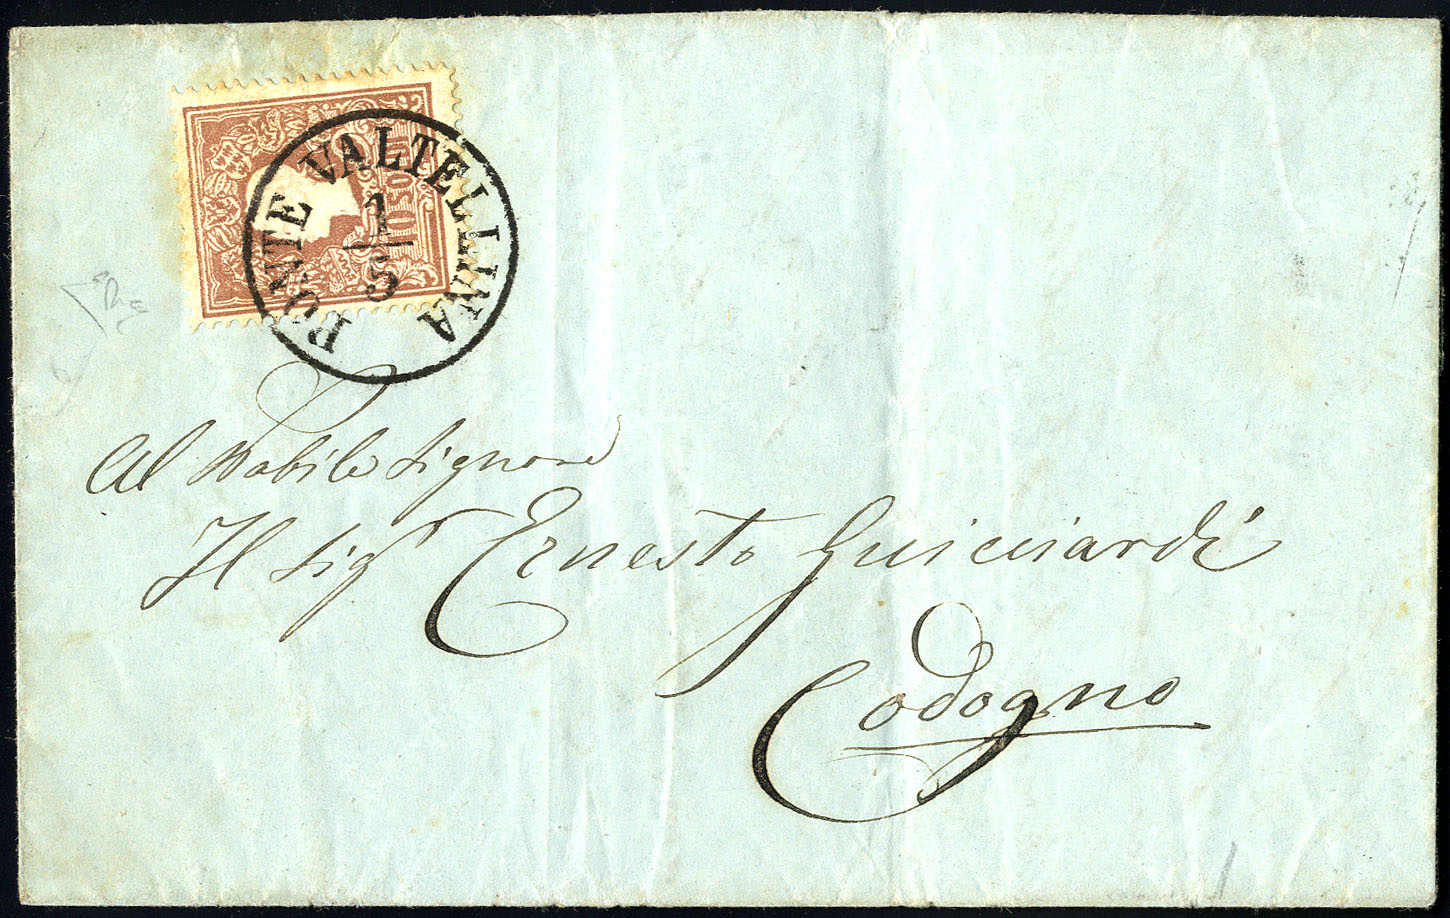 PONTE VALTELLINA
1/5
10 SOLDI
Al Nobile Signore
Il Sigr Ernesto Guicciardi
Codogno